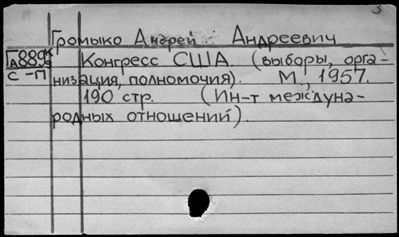 Громыко Андрей Андреевич
А889 Конгресс США. (выборы, орга-
С-П низация, полномочия). М., 1957.
190 стр. (Ин-т междуна-
родных отношений)